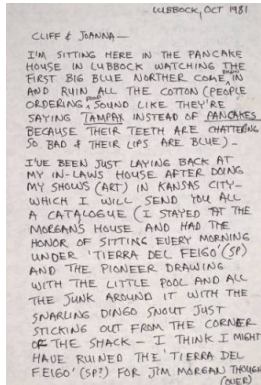 - LUBBOCK, OCT 1981
CLIFF & JOANNA—
I'M SITTING HERE IN THE PANCAKE
HOUSE IN LUBBOCK WATCHING THE
FIRST BIG BLUE NORTHER COME IN
AND RUIN ALL THE COTTON (PEOPLE
ORDERING SOUND LIKE THEY'RE
SAYING TAMPAX INSTEAD OF PANCAKES
BECAUSE THEIR TEETH ARE CHATTERING
SO BAD & THEIR LIPS ARE BLUE)—
I'VE BEEN JUST LAYING BACK AT
MY IN-LAWS HOUSE AFTER DOING
MY SHOWS (ART) IN KANSAS CITY—
WHICH I WILL SEND YOU ALL
A CATALOGUE (I STAYED AT THE
MORGAN'S HOUSE AND HAD THE
HONOR OF SITTING EVERY MORNING
UNDER 'TIERRA DEL FEIGO' (SP)
AND THE PIONEER DRAWING
WITH THE LITTLE POOL AND ALL
THE JUNK AROUND IT WITH THE
SNARLING DINGO SNOUT JUST
STICKING OUT FROM THE CORNER
OF THE SHACK — I THINK I MIGHT
HAVE RUINED THE 'TIERRA DEL
FEIGO' (SP?) FOR JIM MORGAN THOUGH
(OVER)